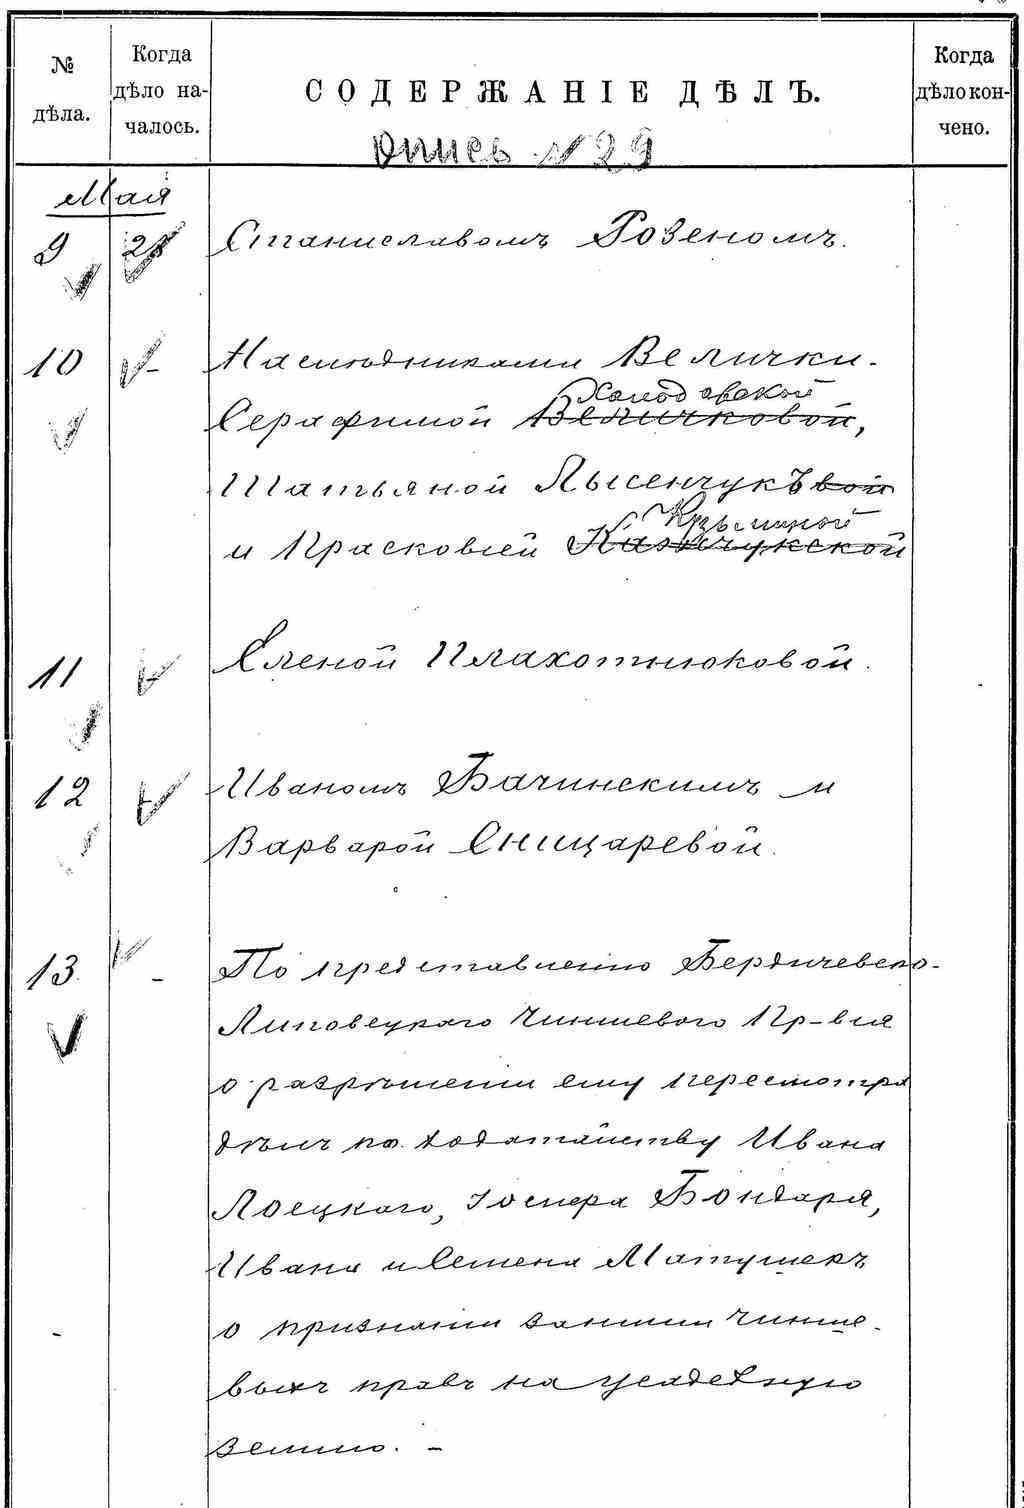 № дѣла.
Когда дѣло началось.
СОДЕРЖАНІЕ ДѢЛЪ.
Когда дѣло кончено.
Опись №29
Мая
9 21 Станиславомъ Розеномъ.
10 - Наслѣдниками Велички-
Холодовской
Серафимой Величковой,
Татьяной Лысенчукъвой
Кузьминой
и Прасковіей
11 - Еленой Плахотнюковой.
12 - Иваномъ Бачинскимъ и
Варварой Сницаревой.
13 - По представленію Бердичевско-
Липовецкаго Чиншевого Пр-вія
о разрѣшеніи ему пересмотра
дѣлъ по ходатайству Ивана
Лоецкаго, Іосифа Бондаря,
Ивана и Семена Матушекъ
о признаніи за ними чинше-
выхъ правъ на усадебную
землю. -